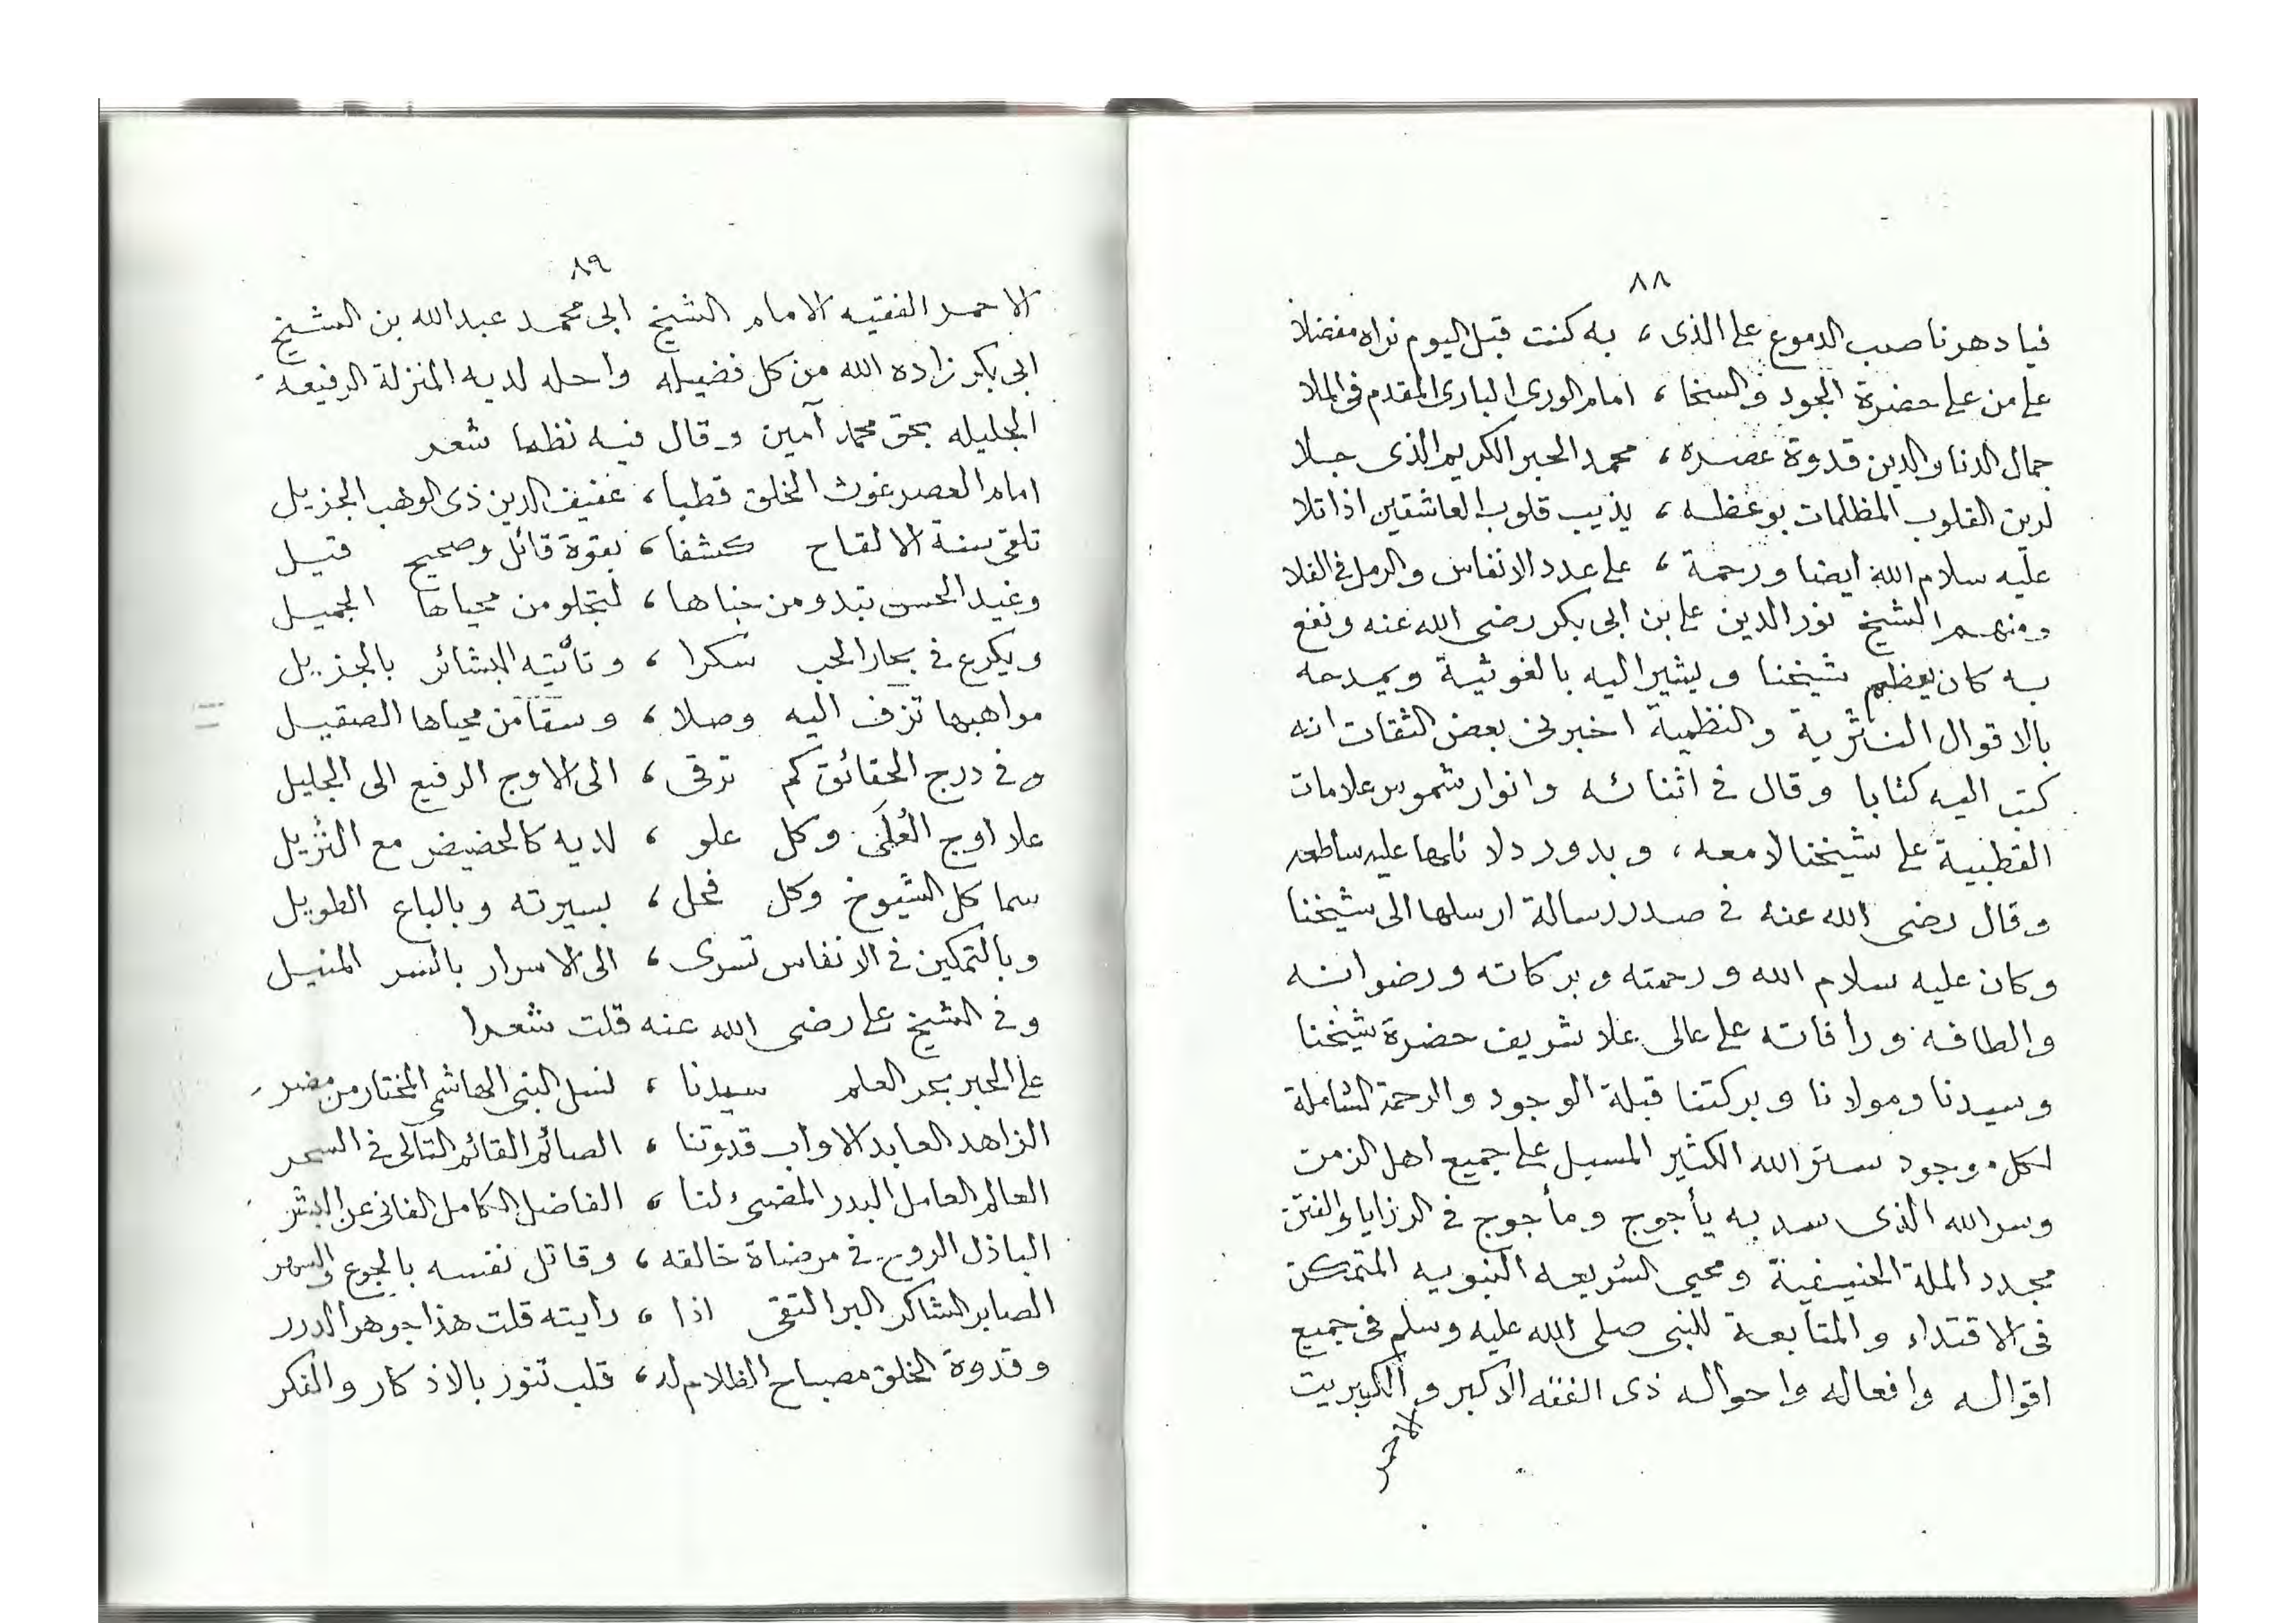 ٨٨
فيا دهرنا صب الدموع على الذى ، به كنت قبل اليوم نراه مفضلا
على من على حضرة الجود والسخا ، امام الورى البارى المقدم فى الملا
جمال الدنا والدين قدوة عصره ، محمد الحبر الكريم الذى جلا
لرين القلوب المظلمات بوعظه ، يذيب قلوب العاشقين اذا تلا
عليه سلام الله ايضا ورحمة ، على عدد الانفاس والرمل فى الفلا
ومنهم الشيخ نور الدين على بن ابى بكر رضى الله عنه ونفع
به كان يعظم شيخنا ويشير اليه بالغوثية ويمدحه
بالاقوال النثرية والنظمية اخبرنى بعض الثقات انه
كتب اليه كتابا وقال فى اثنائه وانوار شموس علامات
القطبية على شيخنا لامعه ، وبدور دلائلها عليه ساطعه
وقال رضى الله عنه فى صدر رسالة ارسلها الى شيخنا
وكان عليه سلام الله ورحمته وبركاته ورضوانه
والطافه ورافاته على عالى علا شريف حضرة شيخنا
وسيدنا ومولانا وبركتنا قبلة الوجود والرحمة الشاملة
لكل موجود ستر الله الكثير المسبل على جميع اهل الزمن
وسر الله الذى سد به يأجوج ومأجوج فى الرزايا والفتن
مجدد الملة الحنيفية ومحيى الشريعه النبويه المتمكن
فى الاقتداء والمتابعة للنبى صلى الله عليه وسلم فى جميع
اقواله وافعاله واحواله ذى الفقه الاكبر والكبريت
الاحمر
٨٩
الاحمر الفقيه الامام الشيخ ابى محمد عبد الله بن الشيخ
ابى بكر زاده الله من كل فضيله واحله لديه المنزلة الرفيعه
الجليله بحق محمد آمين وقال فيه نظما شعر
امام العصر غوث الخلق قطبا ، عفيف الدين ذى الوهب الجزيل
تلقى سنة الالقاح كشفا ، بقوة قائل وصحيح قيل
وغيد الحسن تبدو من خباها ، لتجلو من محياها الجميل
ويكرع فى بحار الحب سكرا ، وتأتيه البشائر بالجزيل
مواهبها تزف اليه وصلا ، وسقا من محياها الصقيل
وفى درج الحقائق كم ترقى ، الى الاوج الرفيع الى الجليل
علا اوج العُلَى وكل علو ، لديه كالحضيض مع النزيل
سما كل الشيوخ وكل فحل ، بسيرته وبالباع الطويل
وبالتمكين فى الانفاس تسرى ، الى الاسرار بالسر المنيل
وفى الشيخ على رضى الله عنه قلت شعرا
على الحبر بحر العلم سيدنا ، نسل النبى الهاشمى المختار من مضر
الزاهد العابد الاواب قدوتنا ، الصائم القائم التالى فى السحر
العالم العامل البدر المضىء لنا ، الفاضل الكامل الفانى عن البشر
الباذل الروح فى مرضاة خالقه ، وقاتل نفسه بالجوع والسهر
الصابر الشاكر البر التقى اذا ، رايته قلت هذا جوهر الدرر
وقدوة الخلق مصباح الظلام له ، قلب تنور بالاذكار والفكر